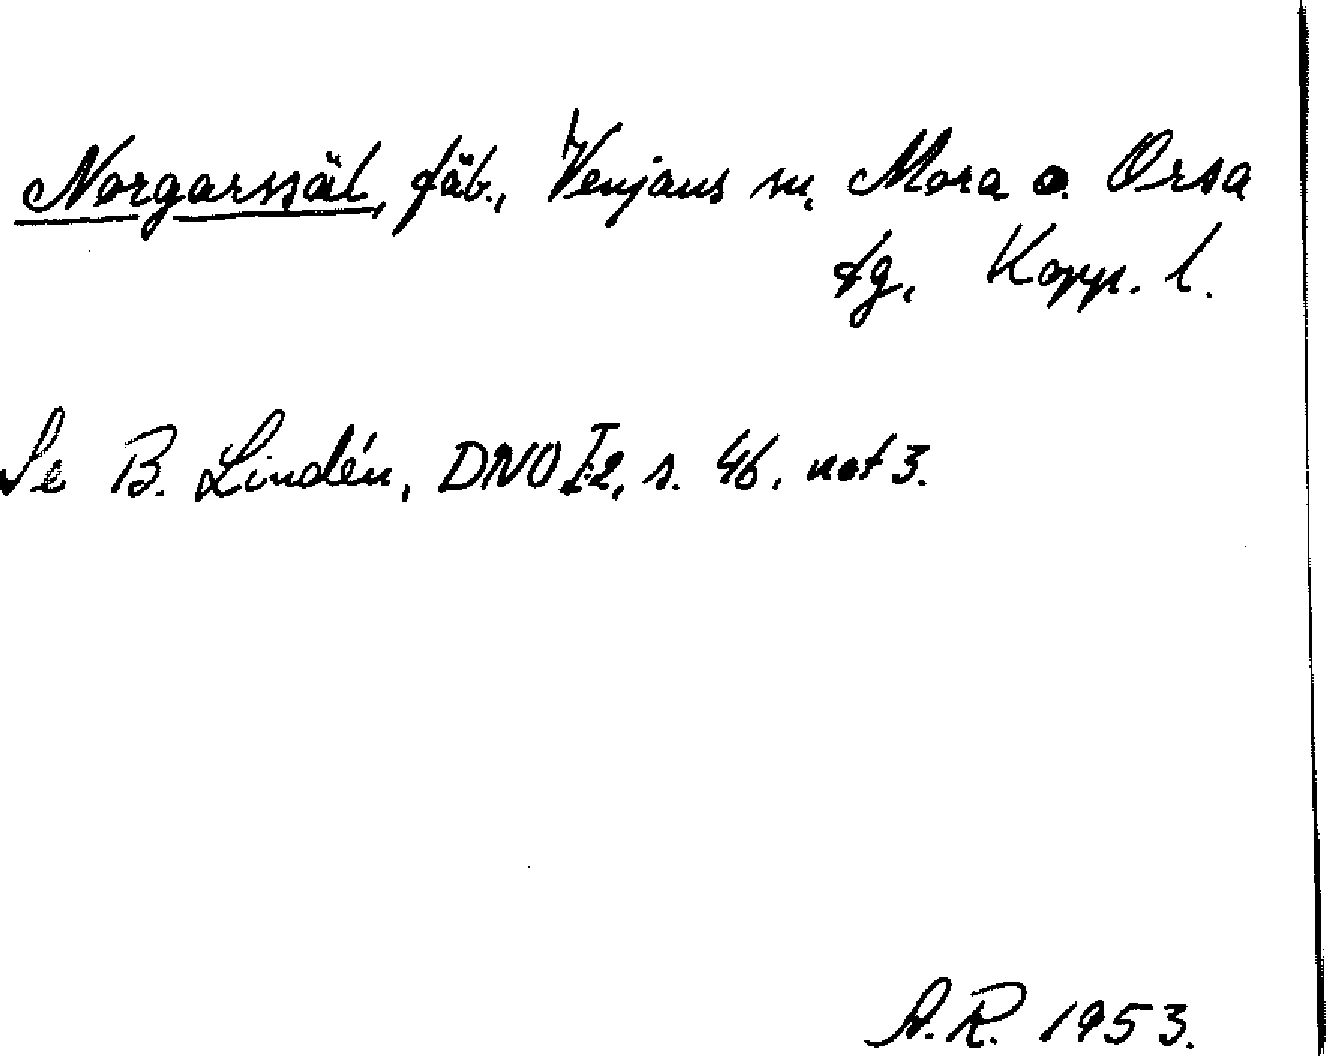 Norgarssäl, fäb., Venjans sn, Mora o. Orsa
tg, Kopp. l.
Se B. Lindén, DNO I:2, s. 46, not 3.
A.R. 1953.